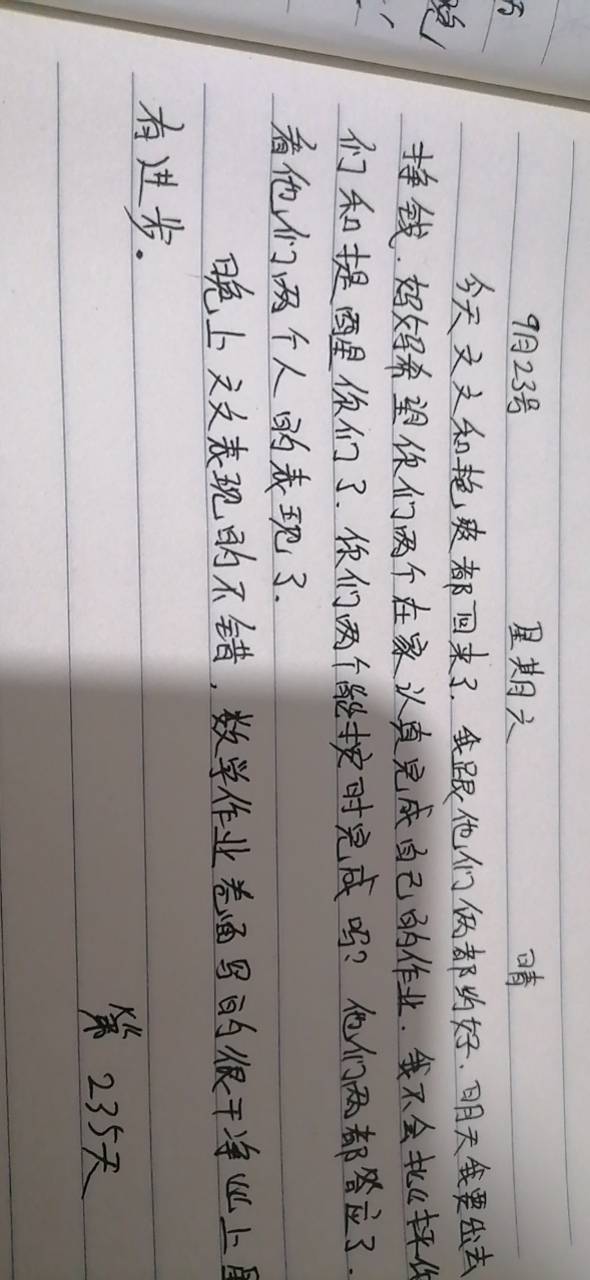 9月23号 星期六 晴
今天文文和艳爽都回来了.我跟他们俩都约好.明天我要出去
挣钱.妈妈希望你们两个在家认真完成自己的作业.我不会批评你
们和提醒你们了.你们两个能按时完成吗?他们两都答应了.
看他们两个人的表现了.
晚上文文表现的不错,数学作业卷面写的很干净比上
有进步.
第235天